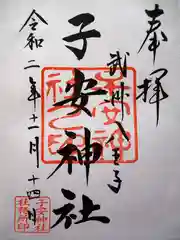 奉拝
武州八王子
子安神社
令和二年十一月十四日
子安神社
社務所印